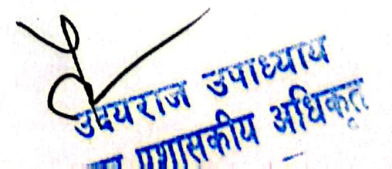 उदयराज उपाध्याय
प्रशासकीय अधिकृत